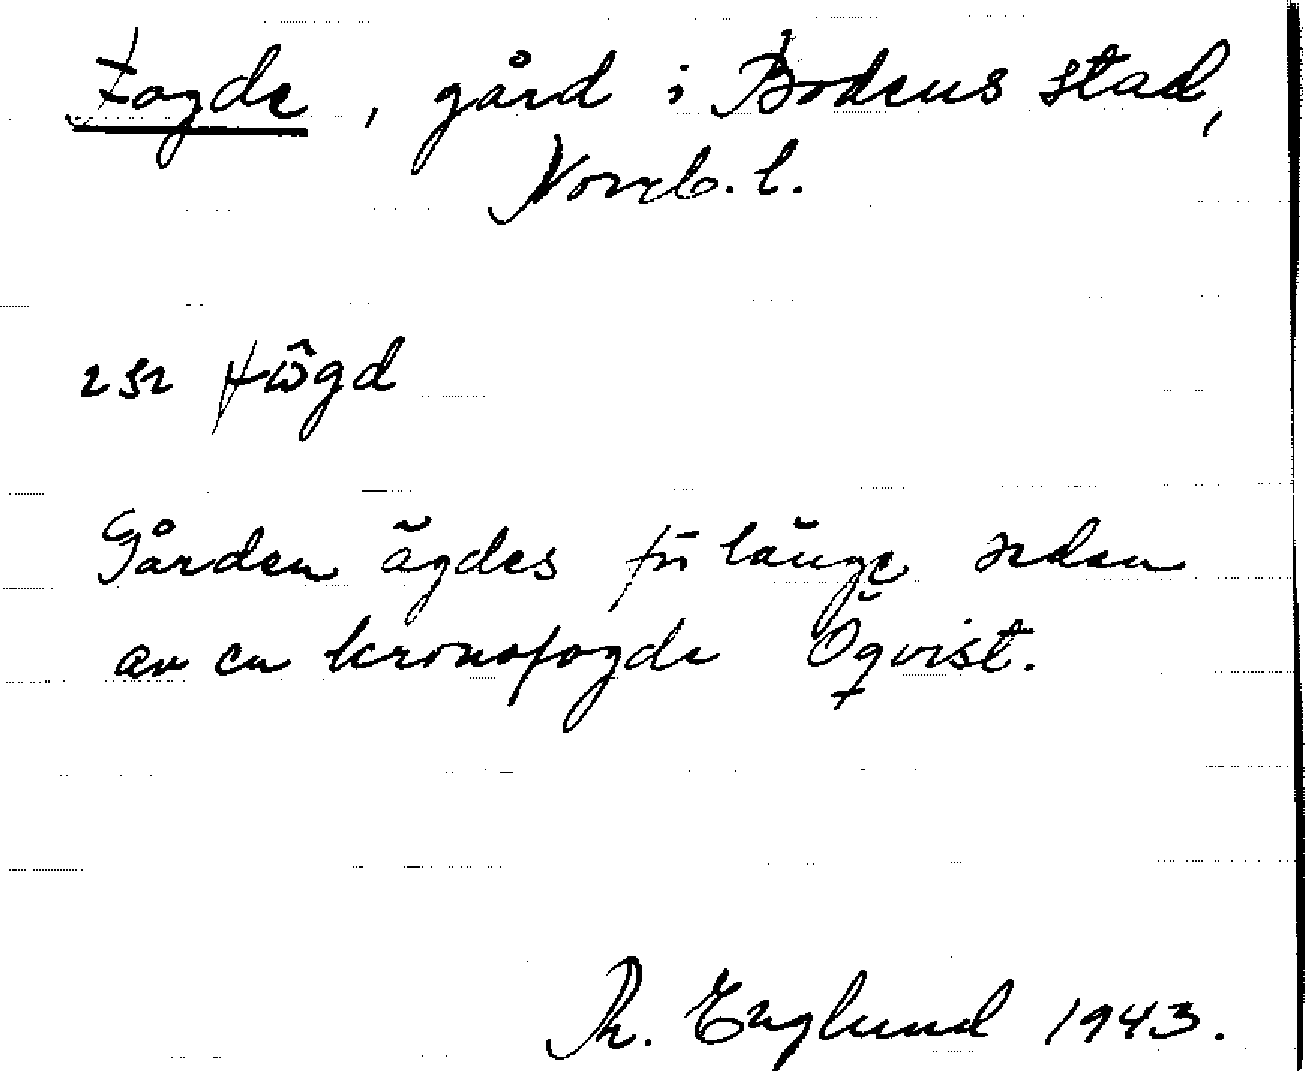 Fogde, gård i Bodens stad,
Norrb. l.
252 fω̂gd
Gården ägdes för länge sedan
av en kronofogde Öqvist.
Th. Englund 1943.